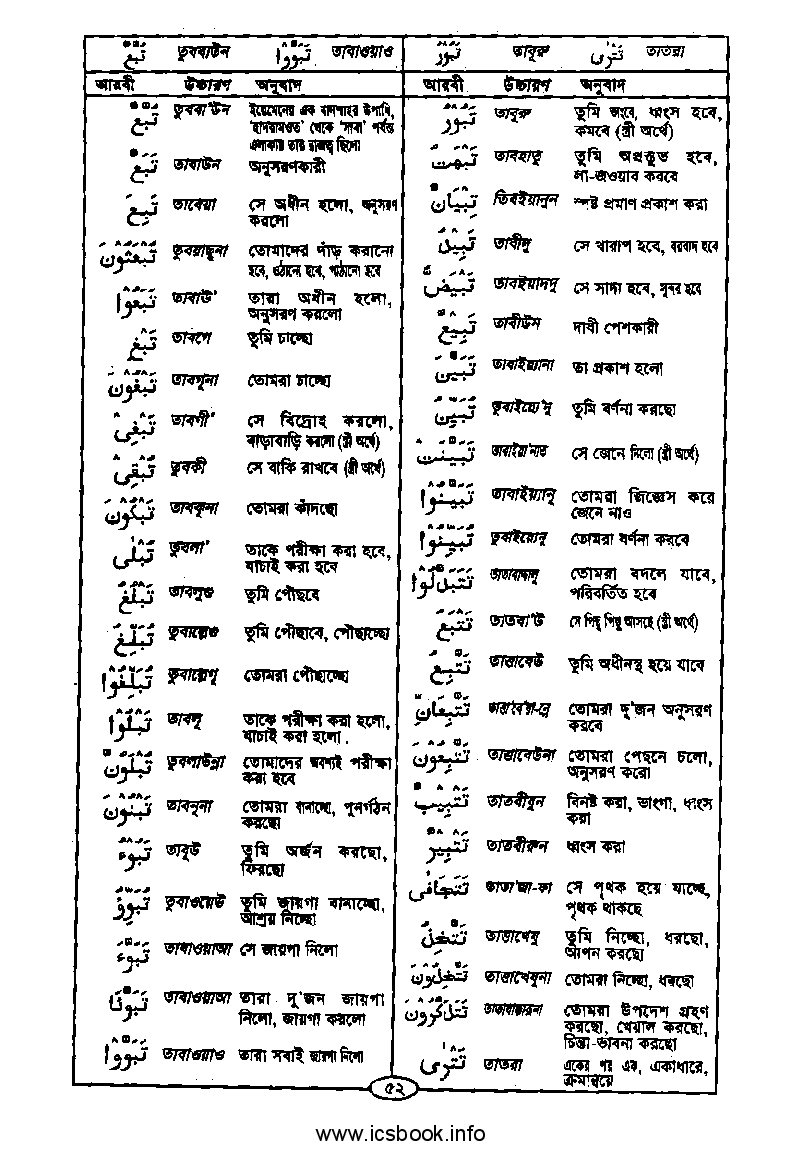 تُبَّعٌ তুববাউন تَبَوَّؤُا তাবাওয়াও
আরবী উচ্চারণ অনুবাদ
تُبَّعٌ তুববা'উন ইয়েমেনের এক বাদশাহর উপাধি,
'হাদরামওত' থেকে 'সাবা' পর্যন্ত
এলাকায় তার রাজত্ব ছিলো
تَبَعٌ তাবাউন অনুসরণকারী
تَبِعَ তাবেয়া সে অধীন হলো, অনুসরণ
করলো
تُبْعَثُوْنَ তুবয়াছুনা তোমাদের দাঁড় করানো
হবে, ওঠানো হবে, পাঠানো হবে
تَبِعُوْا তাবাউ' তারা অধীন হলো,
অনুসরণ করলো
تَبْغِ তাবগে তুমি চাচ্ছো
تَبْغُوْنَ তাবগুনা তোমরা চাচ্ছো
تَبْغِىْ তাবগী' সে বিদ্রোহ করলো,
বাড়াবাড়ি করলো (স্ত্রী অর্থে)
تُبْقِىْ তুবকী সে বাকি রাখবে (স্ত্রী অর্থে)
تَبْكُوْنَ তাবকুনা তোমরা কাঁদছো
تُبْلٰى তুবলা' তাকে পরীক্ষা করা হবে,
যাচাই করা হবে
تَبْلُغُ তাবলুগু তুমি পৌছবে
تُبَلِّغُ তুবাল্লেগু তুমি পৌছাবে, পৌছাচ্ছো
تُبَلِّغُوْا তুবাল্লেগু তোমরা পৌছাচ্ছো
تَبْلُوْا তাবলু তাকে পরীক্ষা করা হলো,
যাচাই করা হলো.
تُبْلَوُنَّ তুবলাউন্না তোমাদের অবশ্যই পরীক্ষা
করা হবে
تَبْنُوْنَ তাবনুনা তোমরা বানাচ্ছো, পুনর্গঠন
করছো
تَبُوْءَ তাবূউ তুমি অর্জন করছো,
ফিরছো
تُبَوِّئُ তুবাওয়েউ তুমি জায়গা বানাচ্ছো,
আশ্রয় নিচ্ছো
تَبَوَّءَ তাবাওয়াআ সে জায়গা নিলো
تَبَوَّاٰ তাবাওয়াআ তারা দু'জন জায়গা
নিলো, জায়গা করলো
تَبَوَّؤُا তাবাওয়াও তারা সবাই জায়গা নিলো
تَبُوْرُ তাবূরু تَتْرٰى তাতরা
আরবী উচ্চারণ অনুবাদ
تَبُوْرُ তাবূরু তুমি ভাংবে, ধ্বংস হবে,
কমবে (স্ত্রী অর্থে)
تَبْهَتُ তাবহাতু তুমি অপ্রস্তুত হবে,
লা-জওয়াব করবে
تِبْيَانٌ তিবইয়ানুন স্পষ্ট প্রমাণ প্রকাশ করা
تَبِيْدُ তাবীদু সে খারাপ হবে, বরবাদ হবে
تَبْيَضُّ তাবইয়াদদু সে সাদা হবে, সুন্দর হবে
تَبِيْعٌ তাবীউন দাবী পেশকারী
تَبَيَّنَ তাবাইয়্যানা তা প্রকাশ হলো
تُبَيِّنُ তুবাইয়্যে'নু তুমি বর্ণনা করছো
تَبَيَّنَتْ তাবাইয়া'নাত সে জেনে নিলো (স্ত্রী অর্থে)
تَبَيَّنُوْا তাবাইয়্যানু তোমরা জিজ্ঞেস করে
জেনে নাও
تُبَيِّنُوْا তুবাইয়্যেনু তোমরা বর্ণনা করবে
تَتَبَدَّلُوْا তাতাবাদ্দালু তোমরা বদলে যাবে,
পরিবর্তিত হবে
تَتْبَعُ তাতবা'উ সে পিছু পিছু আসছে (স্ত্রী অর্থে)
تَتَّبِعُ তাত্তাবেউ তুমি অধীনস্থ হয়ে যাবে
تَتَّبِعَانِّ তাত্তা'বে'য়া-ন্নে তোমরা দু'জন অনুসরণ
করবে
تَتَّبِعُوْنَ তাত্তাবেউনা তোমরা পেছনে চলো,
অনুসরণ করো
تَتْبِيْبٌ তাতবীবুন বিনষ্ট করা, ভাংগা, ধ্বংস
করা
تَتْبِيْرٌ তাতবীরুন ধ্বংস করা
تَتَجَافٰى তাতা'জা-ফা সে পৃথক হয়ে যাচ্ছে,
পৃথক থাকছে
تَتَّخِذُ তাত্তাখেযু তুমি নিচ্ছো, ধরছো,
আপন করছো
تَتَّخِذُوْنَ তাত্তাখেযুনা তোমরা নিচ্ছো, ধরছো
تَتَذَكَّرُوْنَ তাতাযাক্কারুনা তোমরা উপদেশ গ্রহণ
করছো, খেয়াল করছো,
চিন্তা-ভাবনা করছো
تَتْرٰى তাতরা একের পর এক, একাধারে,
ক্রমান্বয়ে
৫২
www.icsbook.info